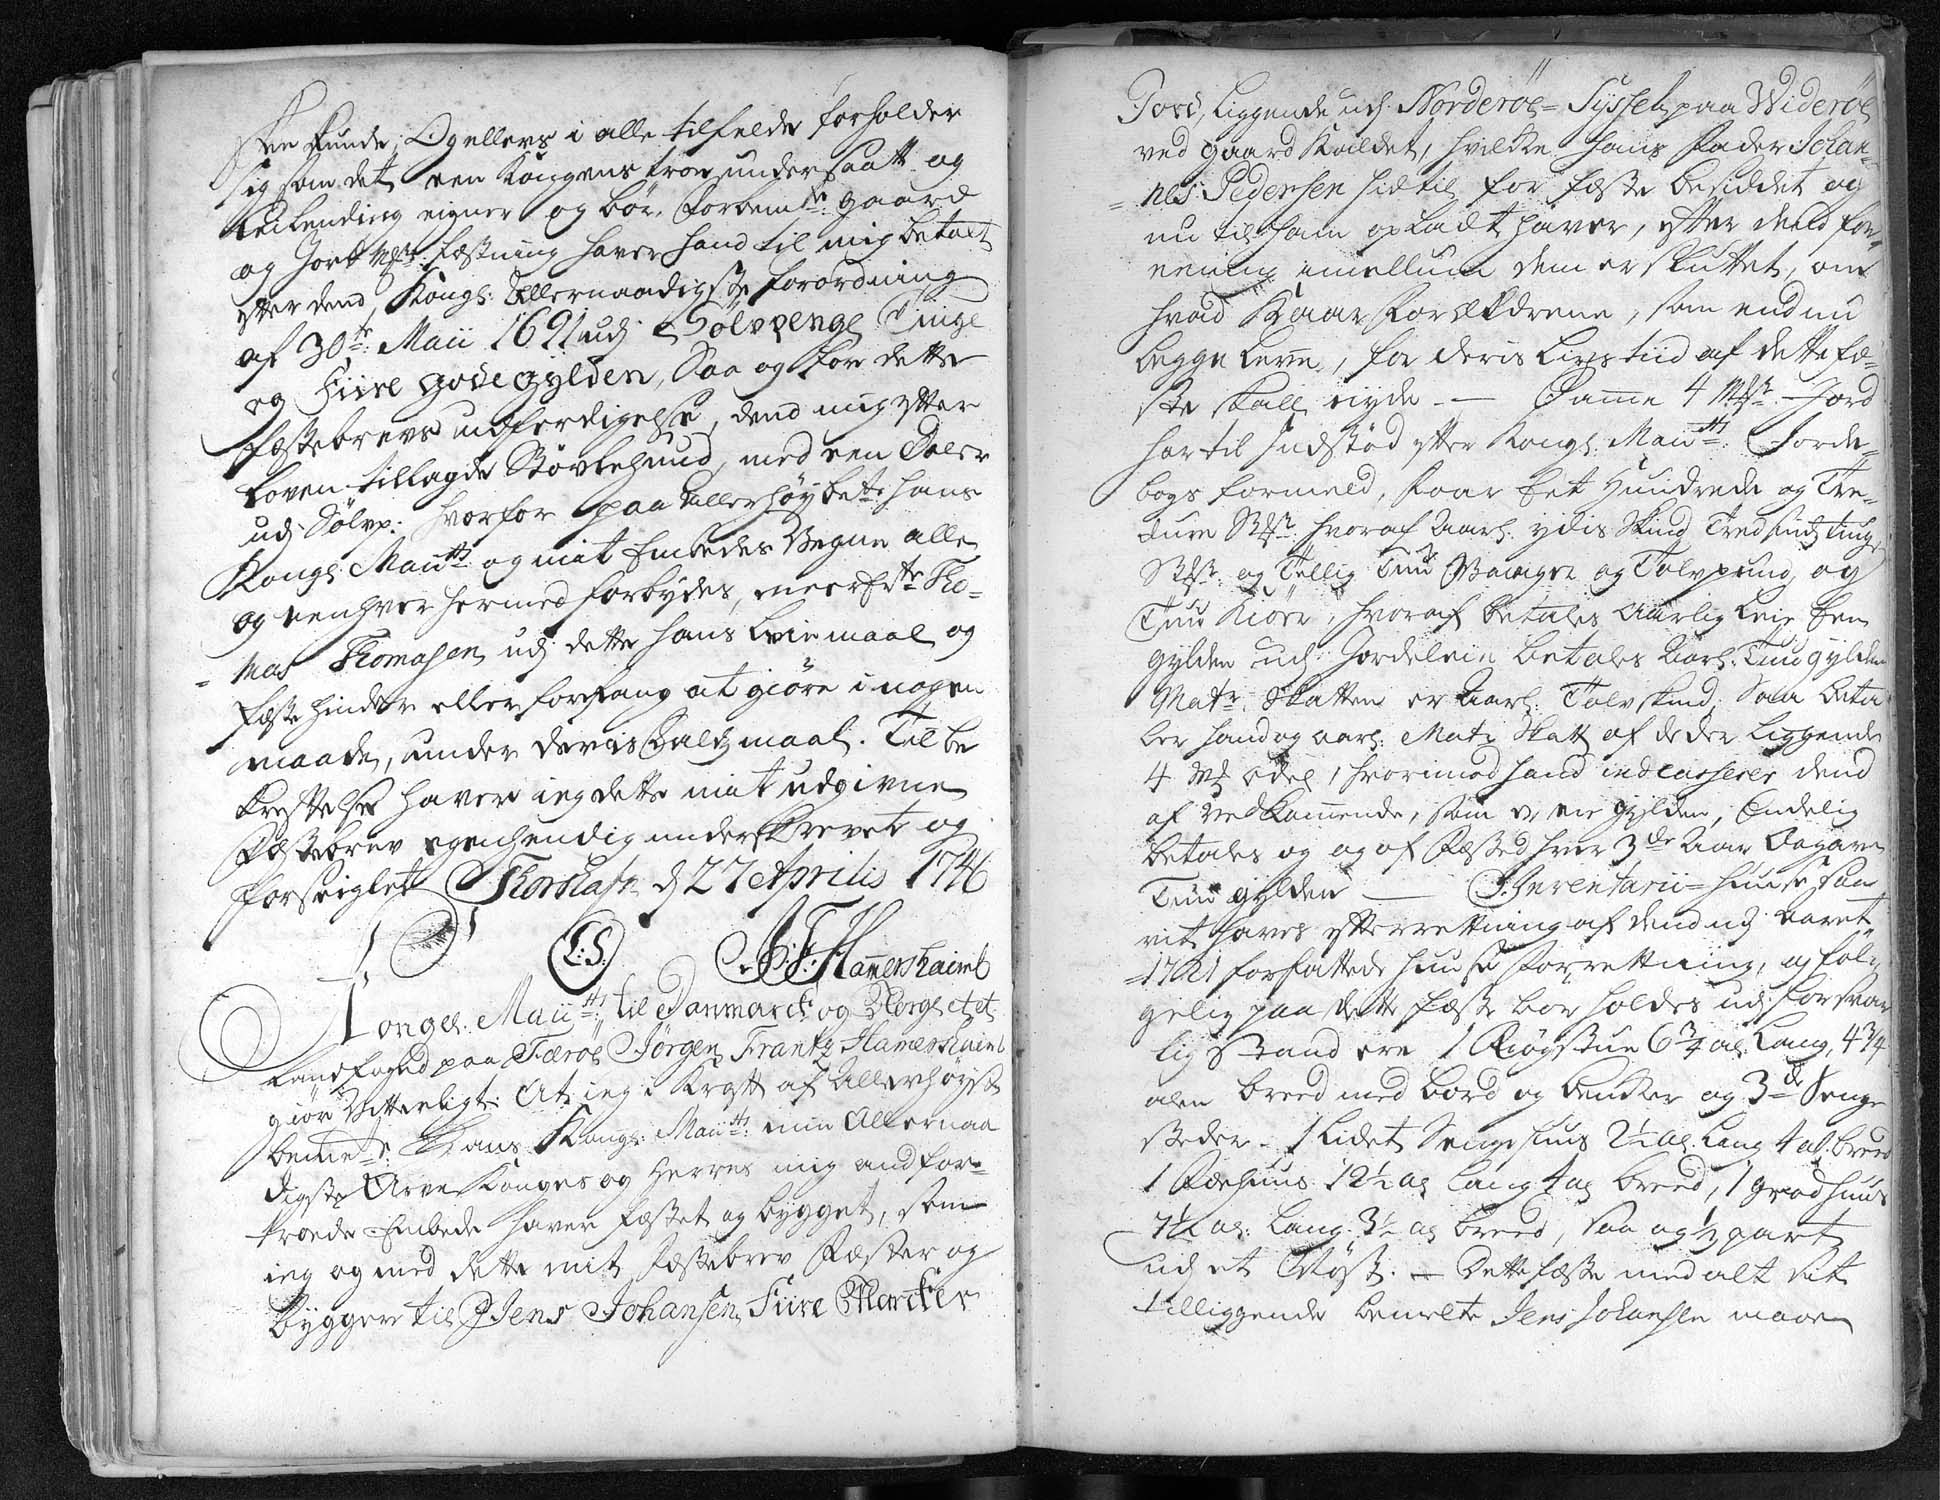 see kunde, Og ellers i alle tilfelde forholder
sig som det een Kongens troe undersaatt og
Leilending eigner og bør. Forbem:te gaard
og Jord festning haver hand til mig betalt
efter dend Kongl: Allernaadigste forordning
af 30te Maii 1691 udj Sølvpenge Tinge
og Fiire gode gylden, Saa og for dette
festebrevs udferdigelse, dend mig efter
Loven tillagde Støvlehuud, med een Daler
udj Sølvp: hvorfor paa Allerhøybe:te hans
Kongl: Maii:ts og mit Embedes Vegne alle
og eenhver hermed forbydes, meerbe:te Tho-
mas Thomasen udj dette hans Leiemaal og
feste hinder eller forfang at giøre i nogen
maade, under deris Faldsmaal. Til be
krefftelse haver ieg dette mit udgivne
Festebrev egenhendig underskrevet og
forseiglet Thorshafn d 27 Aprilis 1746
L:S: J:F: Hamershaimb
Kongel: Maii:ts til Danmarck og Norge etc
Landfoged paa Færøe Jørgen Frantz Hamershaimb
giør Vitterligt: At ieg i Krafft af Allerhøyst
bemelte Hans Kongl: Maii:ts min Allernaa
digste Arve Konges og Herres mig andfor-
troede Embede haver festet og bygget, som
ieg og med dette mit Festebrev Fester og
bygger til Jens Johansen Fiire Marcker
Jord, liggende udj Norderøe-Syssel paa Widerøe
ved gaard Kvildet, hvilke hans Fader Johan-
nes Pedersen hidtil for feste besiddet og
nu til ham opladt haver, efter dend for-
ening imellum dem er sluttet, om
hvad Kaar Forældrene, som endnu
begge leve, for deris Livs tiid af dette fe-
ste skall niyde. — Samme 4 Mk Jord
har til Indstød efter Kongl: Maii:ts Jorde-
bogs formeld, Faar Eet Hundrede og Tre-
hvoraf Aarl: ydis Skind Tredsindstiuge
og Tellig Tuu og Tolv pund, og
Tuu Kiøer, hvoraf betales Aarlig leie Een
gylden udj Jordeleie betales Aarl: Tuu gylden
Mat:r Skatten er Aarl: Tolv skind, Saa beta
ler hand og aarl: Mat: Skatt af de der liggende
4 Mk odel, hvorimod hand indcasserer dend
af vedkommende, som er een gylden, Endelig
betales og og af Fested hver 3de Aar
Tuu gylden — Inventarii-Huuse som
vit haves efterrettning af dend udj aaret
1721 forfattede Huuse forrettning, og føl-
gelig paa dette feste bør holdes udj forsvar
lig Stand ere 1 Røgstue 6 3/4 al: Lang, 4 3/4
alen breed med bord og bencker og 3de Senge
steder. 1 Lidet Sengehuus 2 1/2 al: Lang 4 al: breed
1 Fæhuus 12 1/2 al Lang 4 al breed, 1 grødhuus
7 1/2 al: Lang 3 1/2 al breed, saa og 1/3 part
ud et Nøst. — Dette feste med alt sit
tilliggende bemelte Jens Johansen maae